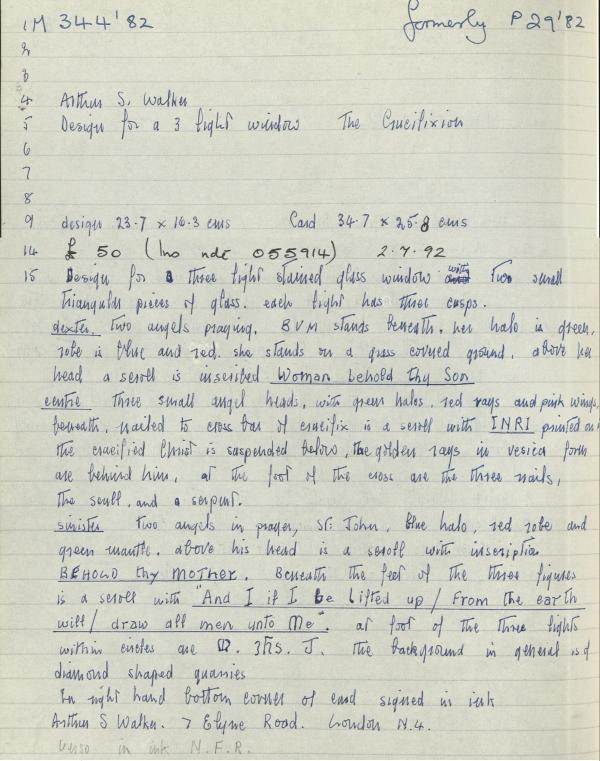 1 M 344'82 formerly P 29'82
2
3
4 Arthur S. Walker
5 Design for a 3 light window The Crucifixion
6
7
8
9 design 23.7 x 16.3 cms Card 34.7 x 25.8 cms
14 £ 50 (Ins ndt 055914) 2.7.92
15 Design for a three light stained glass window with two small
triangular pieces of glass. each light has three cusps.
dexter. two angels praying. BVM stands beneath. her halo is green,
robe is blue and red. she stands on a grass covered ground. above her
head a scroll is inscribed Woman behold thy Son
centre three small angel heads, with green halos, red rays and pink wings,
beneath, nailed to cross bar of crucifix is a scroll with INRI printed on
the crucified Christ is suspended below, the golden rays in vesica form
are behind him, at the foot of the cross are the three nails,
the scull, and a serpent.
sinister two angels in prayer, St: John, blue halo, red robe and
green mantle. above his head is a scroll with inscription
BEHOLD thy MOTHER. Beneath the feet of the three figures
is a scroll with "And I if I be lifted up / From the earth
will / draw all men unto Me". at foot of the three lights
within circles are . S. J. the background in general is of
diamond shaped quarries
In right hand bottom corner of card signed in ink
Arthur S Walker. 7 Elyne Road. London N.4.
Verso in ink N.F.R.